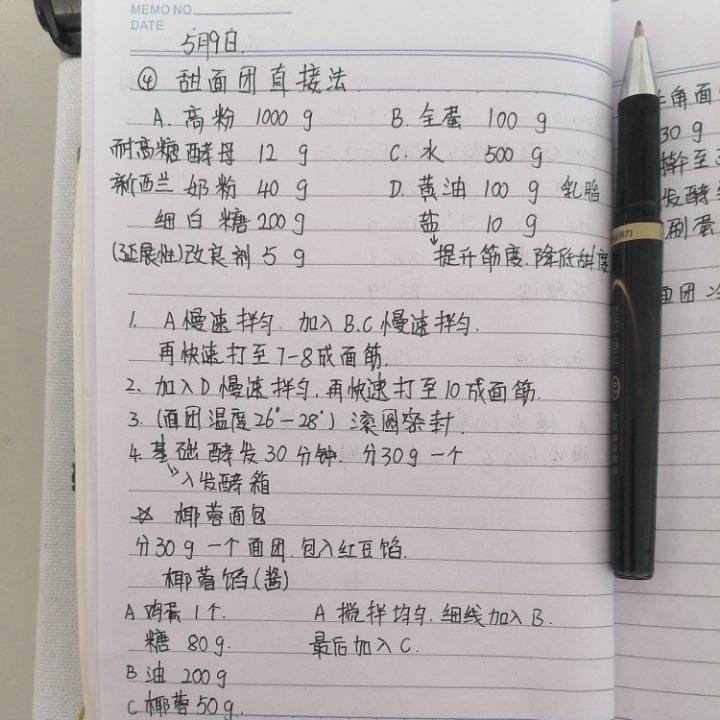 MEMO NO.
DATE
5月9日.
④ 甜面团直接法
A. 高粉 1000 g B. 全蛋 100 g
耐高糖酵母 12 g C. 水 500 g
新西兰 奶粉 40 g D. 黄油 100 g 乳脂
细白糖 200 g 盐 10 g
(延展性)改良剂 5 g 提升筋度.降低甜度
1. A慢速拌匀. 加入B.C慢速拌匀.
再快速打至7-8成面筋.
2. 加入D慢速拌匀.再快速打至10成面筋.
3. (面团温度26°-28°) 滚圆密封.
4. 基础酵发30分钟. 分30g一个
入发酵箱
☆ 椰蓉面包
分30g一个面团.包入红豆馅.
椰蓉馅(酱)
A 鸡蛋1个. A 搅拌均匀.细线加入B.
糖 80g. 最后加入C.
B 油 200g
C 椰蓉50g.
角面
30 g
擀至
发酵
刷蛋
面团